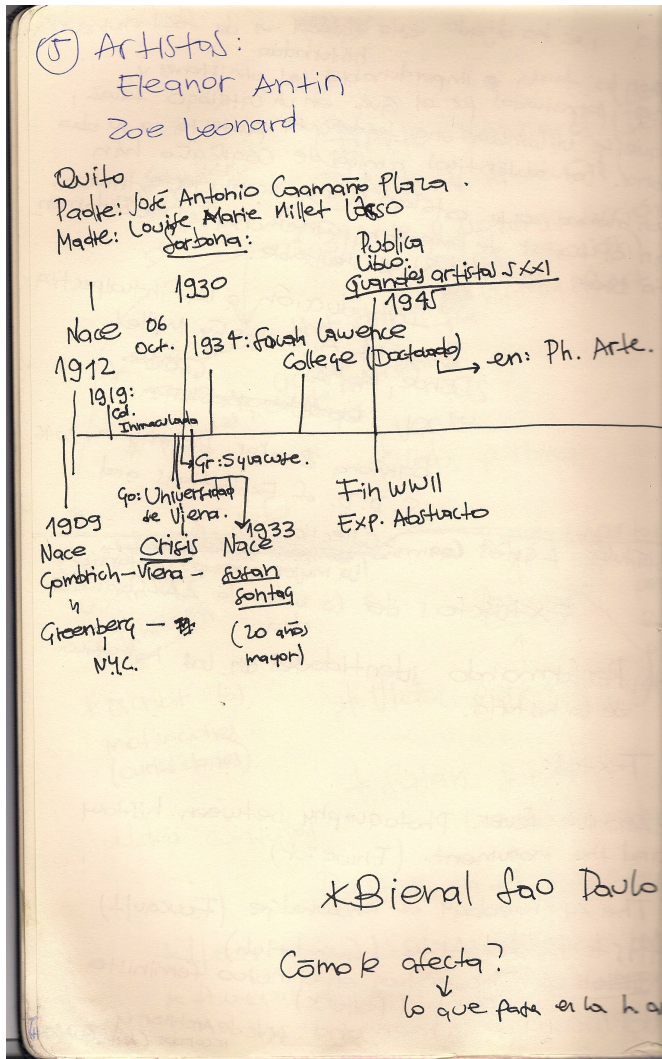 5 Artistas:
Eleanor Antin
Zoe Leonard
Quito
Padre: José Antonio Caamaño Plaza.
Madre: Louise Marie Millet Lasso
Sorbona:
1930
Publica
Libro:
Grandes artistas SXXI
1945
Nace 06
Oct.
1912
1934: Sarah Lawrence
College (Doctorado)
→ en: Ph. Arte.
1919:
Col.
Inmaculada
Gr: Syracuse.
90: Universidad
de Viena.
Fin WWII
Exp. Abstracto
1909
Nace
Gombrich – Viena –
Crisis
1933
Nace
Susan
Sontag
(20 años
mayor)
Greenberg –
N.Y.C.
*Bienal Sao Paulo
Cómo le afecta?
lo que pasa en la